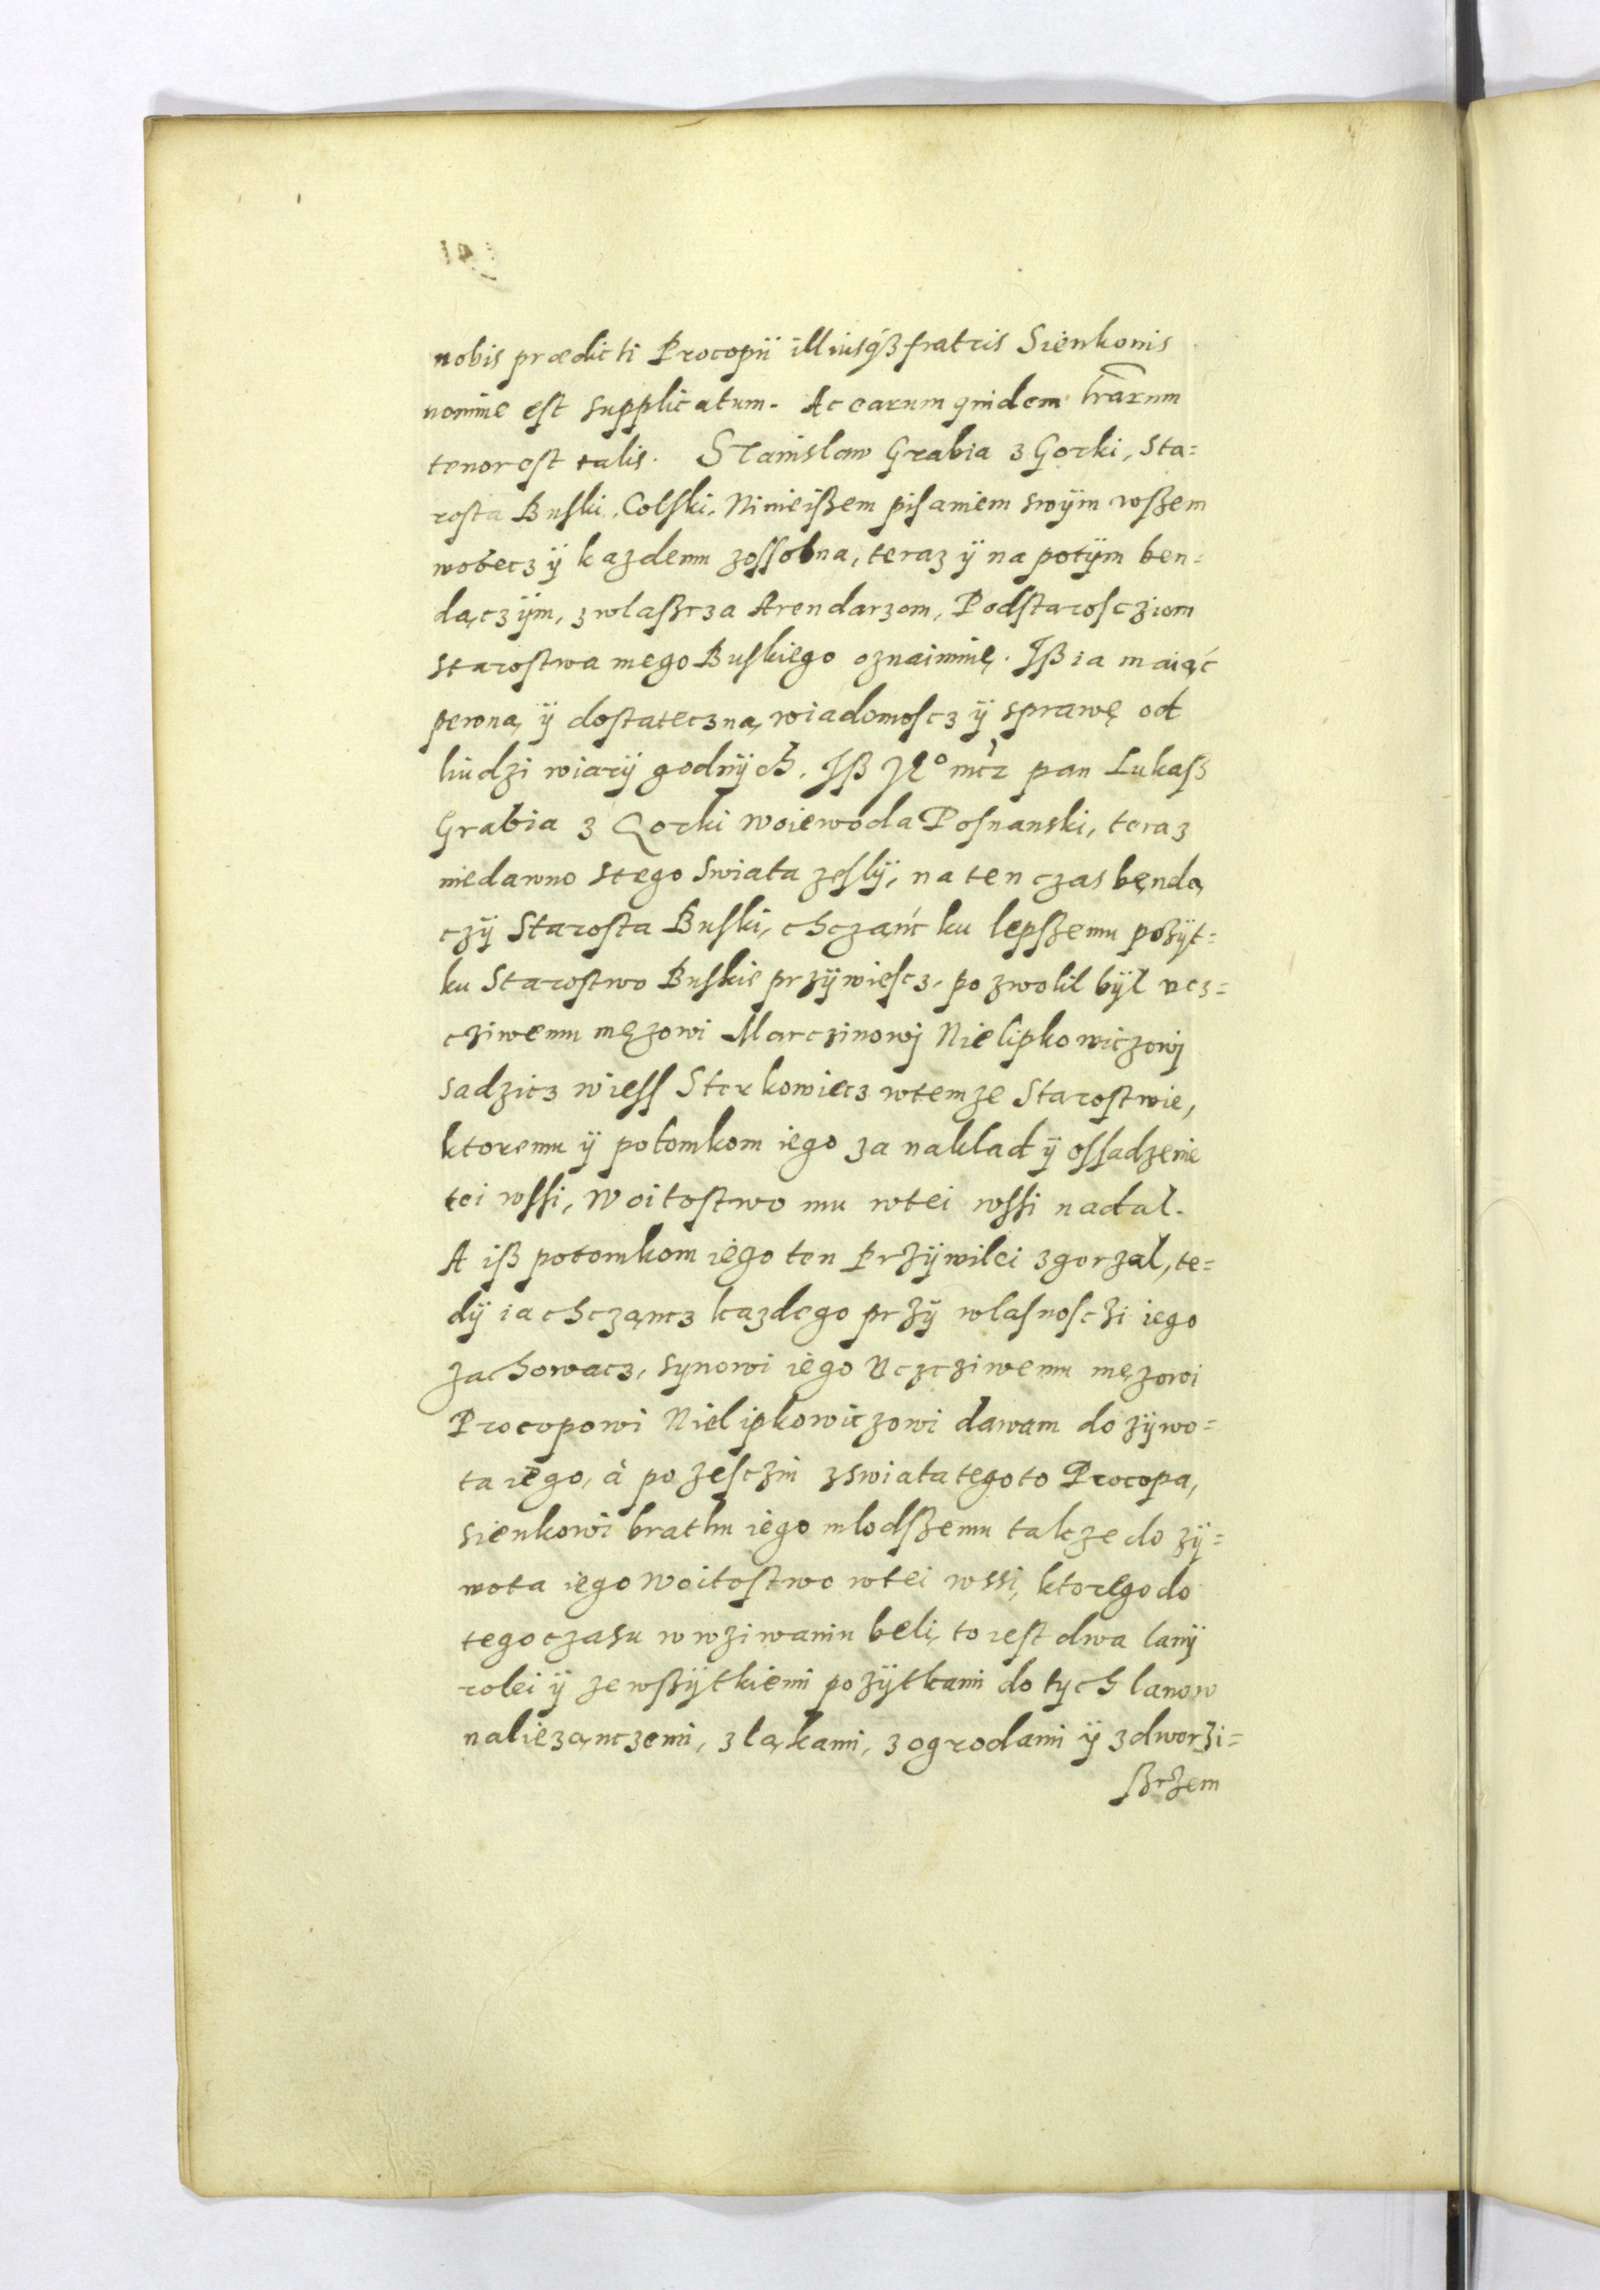 nobis prædicti Procopii illiusq́ȝ fratris Sienkonis
nomine est supplicatum. Ac earum quidem lr̃arum
tenor est talis. Stanislaw Grabia z Gorki, Sta=
rosta Buski, Colski. Ninieißem pisaniem swÿm wßem
wobecz ÿ kazdemu zossobna, teraz ÿ na potÿm ben=
dączÿm, zwlaßcza Arendarzom, Podstaroscziom
Starostwa mego Buskiego oznaimię. Iß ia maiąć
pewną ÿ dostateczną wiadomoscz ÿ sprawę od
liudzi wiarÿ godnÿch. Iß Je° mcz pan Lukasz
Grabia z Gorki woiewoda Posnanski, teraz
niedawno stego swiata zeslÿ, na ten czas będą
czÿ Starosta Buski, chcząnć ku lepszemu pozÿt=
ku Starostwo Buskie przÿwiescz, pozwolil bÿl ucz=
cziwemu męzowi Marczinowj Nielipkowiczowj
sadzicz wiess Sterkowiecz wtemze Starostwie,
ktoremu ÿ potomkom iego za naklad ÿ ossadzenie
tei wssi, Woitostwo mu wtei wssi nadal.
A iß potomkom iego ten Przÿwilei zgorzal, te=
dÿ ia chcząncz kazdego przÿ wlasnosczi iego
zachowacz, synowi iego Uczcziwemu męzowi
Procopowi Nielipkowiczowi dawam do zÿwo=
ta iego, à po zesczin zswiata tegoto Procopa,
sienkowi brathu iego mlodßemu takze do zÿ=
wota iego Woitostwo wtei wssi, ktorego do
tego czasu w wziwaniu beli, to iest dwa lanÿ
rolei ÿ ze wßÿtkiemi pozÿtkami do tych lanow
naliezączemi, z ląkami, z ogrodami ÿ z dworzi=
ßczem